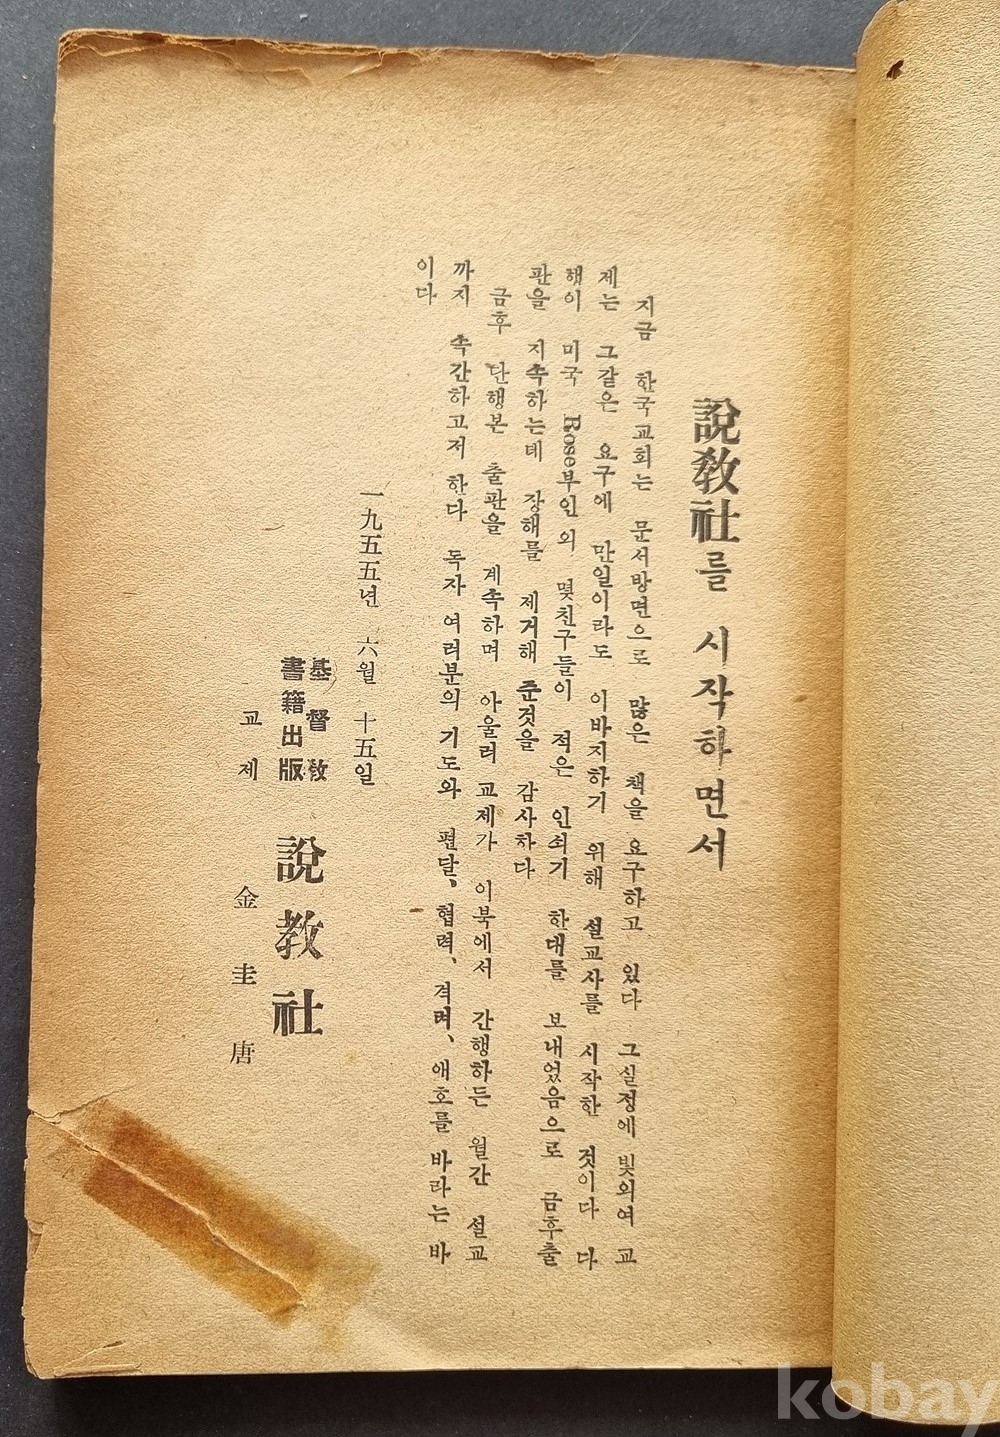 說敎社를 시작하면서
지금 한국교회는 문서방면으로 많은 책을 요구하고 있다 그실정에 빛외여 교
제는 그같은 요구에 만일이라도 이바지하기 위해 설교사를 시작한 것이다 다
행이 미국 Rose부인외 몇친구들이 적은 인쇠기 한대를 보내었음으로 금후출
판을 지속하는데 장해를 제거해 준것을 감사하다
금후 단행본 출판을 계속하며 아울러 교제가 이북에서 간행하든 월간 설교
까지 속간하고저 한다 독자 여러분의 기도와 편달、협력、격려、애호를 바라는 바
이다
一九五五년 六월 十五일
基督敎
書籍出版
說敎社
교제 金圭唐
kobay